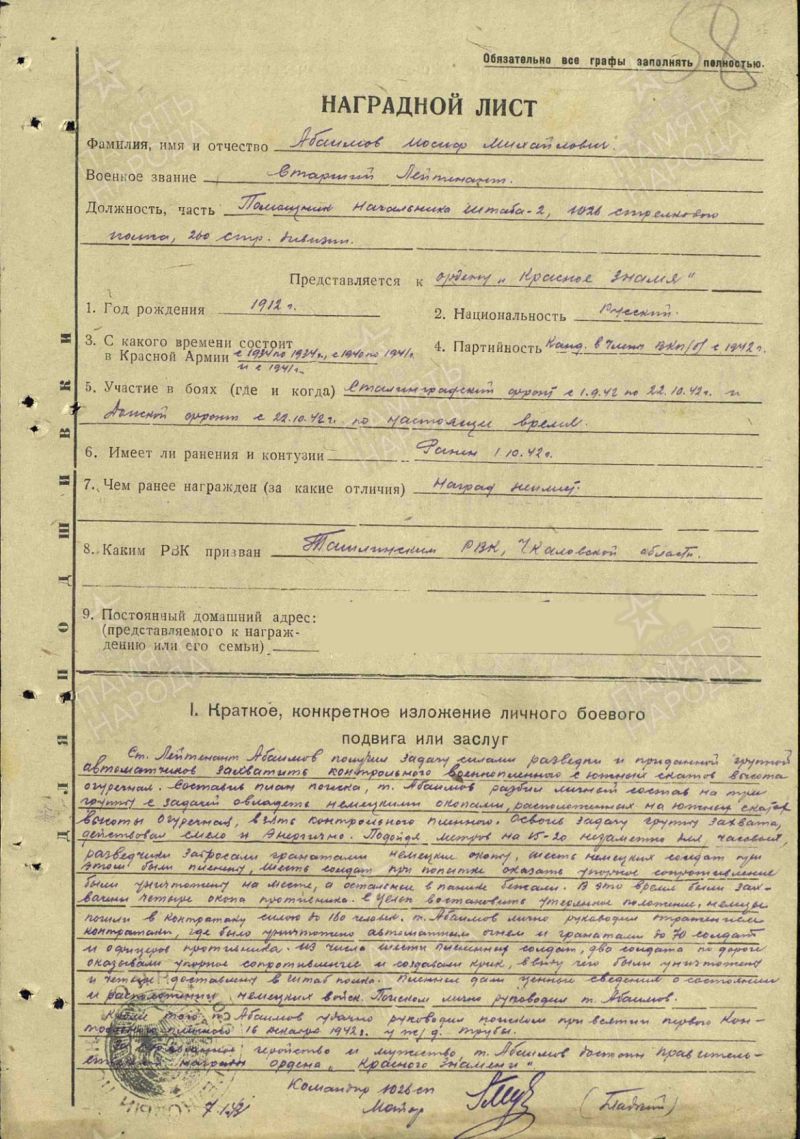 58
Обязательно все графы заполнять полностью.
НАГРАДНОЙ ЛИСТ
Фамилия, имя и отчество Абаимов Иосиф Михайлович.
Военное звание Старший Лейтенант.
Должность, часть Помощник Начальника штаба-2, 1026 стрелкового
полка, 260 стр. дивизии.
Представляется к ордену „Красное Знамя"
1. Год рождения 1912 г.
2. Национальность Русский.
3. С какого времени состоит
в Красной Армии с 1934 по 1937 г., с 1940 по 1941 г.
и с 1941 г.
4. Партийность Канд. в члены ВКП/б/ с 1942 г.
5. Участие в боях (где и когда) Сталинградский фронт с 1.9.42 по 22.10.42 г. и
Донской фронт с 22.10.42 г. по настоящи время.
6. Имеет ли ранения и контузии Ранен 1 10.42 г.
7. Чем ранее награжден (за какие отличия) Наград неимет.
8. Каким РВК призван Ташлинским РВК, Чкаловской области.
9. Постоянный домашний адрес:
(представляемого к награж-
дению или его семьи)
ДЛЯ ПОДШИВКИ
I. Краткое, конкретное изложение личного боевого
подвига или заслуг
Ст. Лейтенант Абаимов получил задачу силами разведки и приданной группой
автоматчиков захватить контрольного военнопленного с южных скатов высота
огуречная. Составив план поиска, т. Абаимов разбил личный состав на три
группы с задачей овладеть немецкими окопами, расположенных на южных скатах
высоты Огуречная, взять контрольного пленного. Освоив задачу группы захвата,
действовал смело и энергично. Подойдя метров на 15-20 незаметно для часовых,
разведчики забросали гранатами немецкие окопы, шесть немецких солдат при
этом были пленены, шесть солдат при попытке оказать упорное сопротивление
были уничтожены на месте, а остальные в панике бежали. В это время были зах-
вачены четыре окопа противника. С целью востановить утерянное положение, немцы
пошли в контратаку силою до 160 человек. т. Абаимов лично руководил отражением
контратаки, где было уничтожено автоматным огнем и гранатами до 70 солдат
и офицеров противника. Из числа шести плененных солдат, два солдата по дороге
оказывали упорное сопротивление и создавали крик, ввиду чего были уничтожены
и четыре доставлены в штаб полка. Пленные дали ценные сведения о состоянии
и расположении немецких войск. Поиском лично руководил т. Абаимов.
Кроме того т. Абаимов удачно руководил поиском при взятии первого кон-
трольного пленного 16 января 1942 г. у ж/д. трубы.
За проявленное геройство и мужество, т. Абаимов достоин правитель-
ственной награды ордена „Красного знамени"
Командир 1026 сп
Майор (Гладкий)